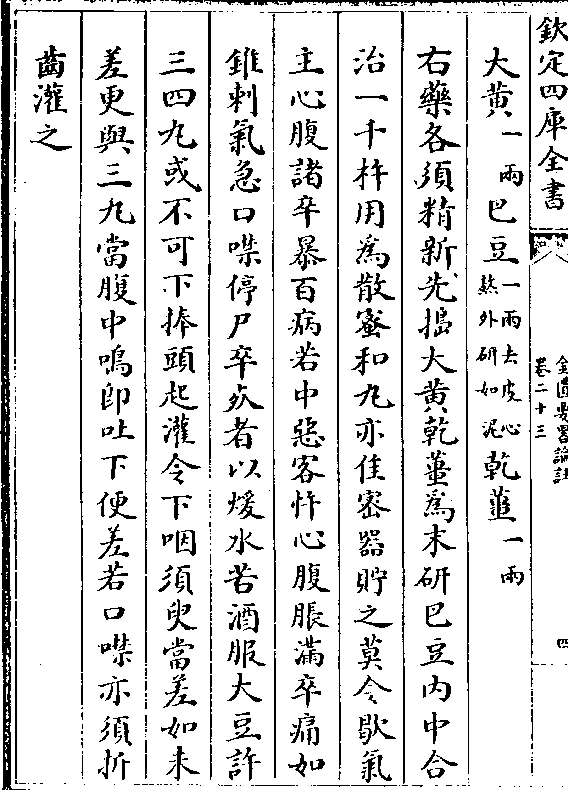 欽定四庫全書
金匱要畧論註
卷二十三
四
大黄一兩巴豆一兩去皮心熬外研如泥乾薑一兩
右藥各須精新先搗大黄乾薑為末研巴豆内中合
治一千杵用為散蜜和丸亦佳密器貯之莫令歇氣
主心腹諸卒暴百病若中惡客忤心腹脹滿卒痛如
錐刺氣急口噤停尸卒死者以煖水苦酒服大豆許
三四丸或不可下捧頭起灌令下咽須臾當差如未
差更與三丸當腹中鳴即吐下便差若口噤亦須折
齒灌之